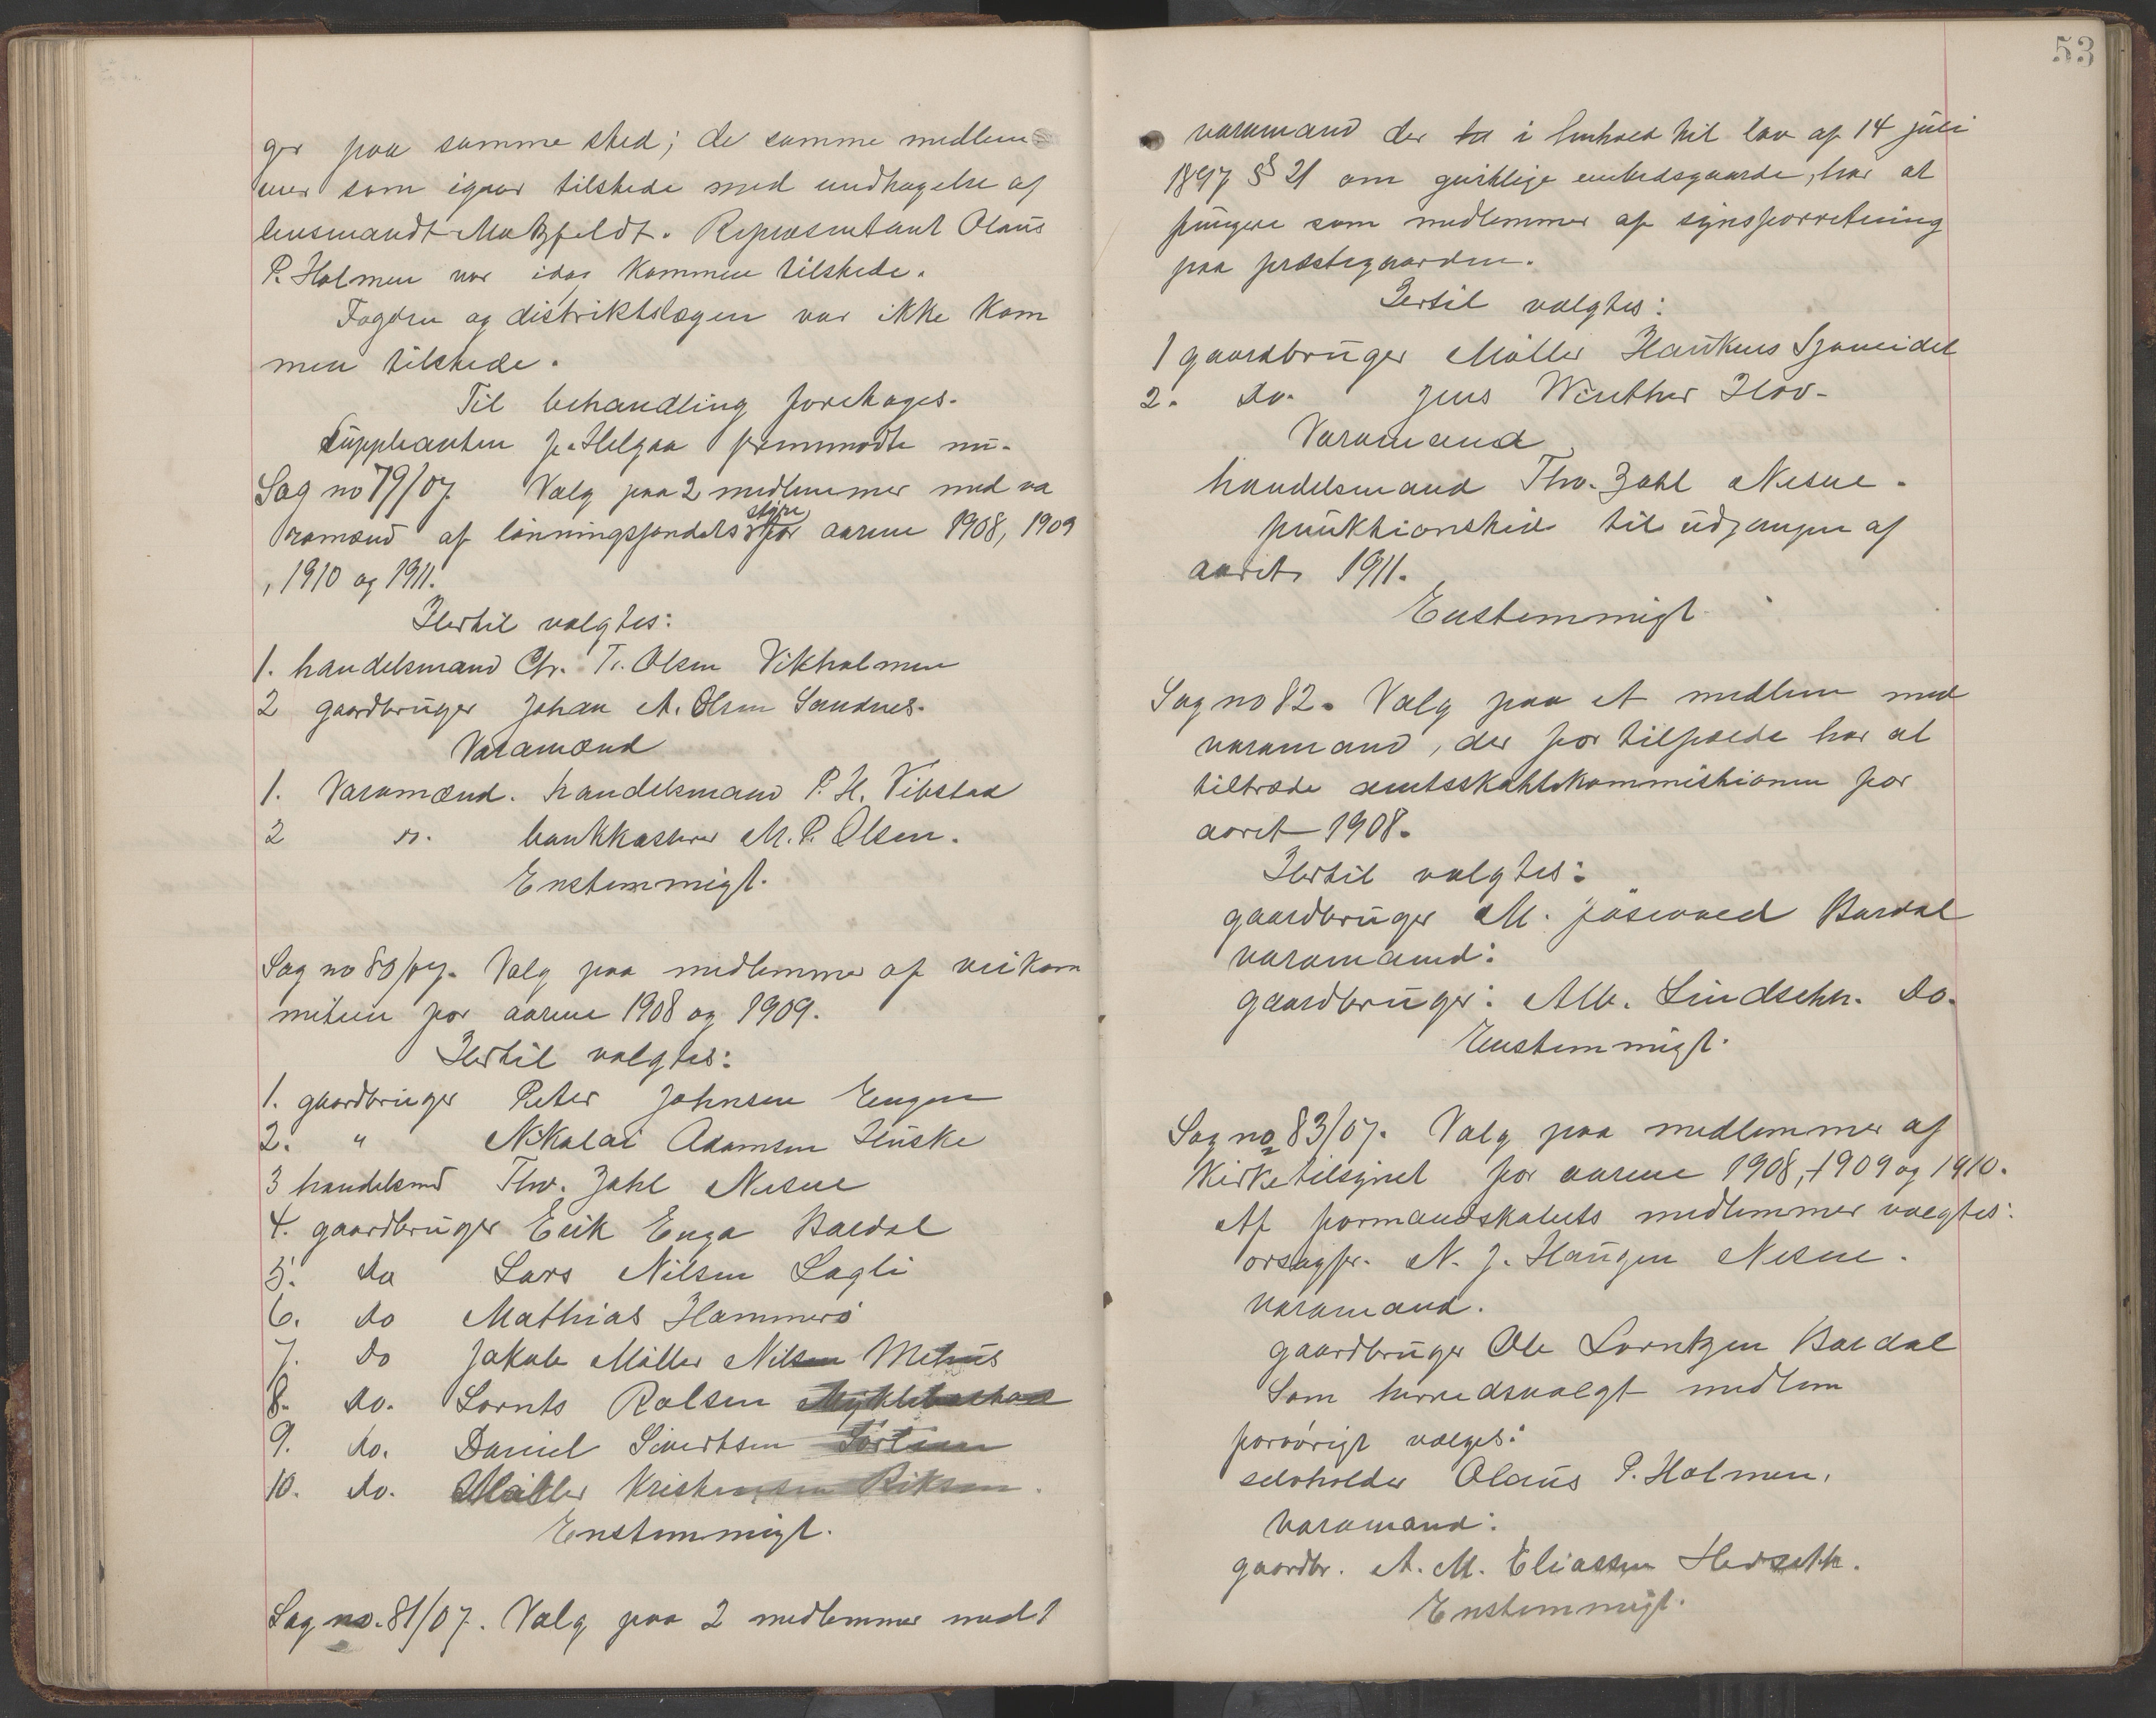 ger paa samme sted; de samme medlem
mer som igaar tilstede med undtagelse af
lensmandt Motzfeldt. Repræsentant Olaus
P. Holmen var idag kommen tilstede.
Fogden og distriktslægen var ikke kom
men tilstede.
Til behandling foretages.
Suppleanten J. Helgaa fremmødte nu.
Sag no 79/07 Valg paa 2 medlemmer med va
ramænd af lønningsfondets styre for aarene 1908, 1909
, 1910 og 1911.
Hertil valgtes:
1. handelsmand Chr. T. Olsen Vikholmen
2 gaardbruger Johan A. Olsen Sandnes.
Varamænd
1. Varamænd. handelsmand P. H. Vibstad
2 do. bankkasserer M. P. Olsen.
Enstemmigt.
Sag no 80/07. Valg paa medlemmer af veikom
miteen for aarene 1908 og 1909.
Hertil valgtes:
1. gaardbruger Peter Johnsen Engen
2. " Nikolai Adamsen Huske
3 handelsmd Thv. Zahl Nesne
4. gaardbruger Erik Enga Bardal
5. do Lars Nilsen Lagli
6. do Mathias Hammerö
7. do Jakob Møller Nilsen Mehus
8. do. Lornts Rolsen Myklebostad
9. do. Daniel Sivertsen
10. do. Møller Kristensen
Enstemmigt.
Sag no. 81/07. Valg paa 2 medlemmer med 1
53
varamand der i henhold til lov af 14 juli
1897 § 21 om geistlige embedsgaarde, har at
fungere som medlemmer af synsforretning
paa præstegaarden.
Hertil valgtes:
1 gaardbruger Møller Haukens Sjoneidet
2. do. Jens Winther Hov.
Varamand
handelsmand Thv. Zahl Nesne.
funktionstid til udgangen af
aaret 1911.
Enstemmigt
Sag no 82. Valg paa et medlem med
varamand, der for tilfælde har at
tiltræde amtsskattekommishionen for
aaret 1908.
Hertil valgtes:
gaardbruger M. Bardal
varamand:
gaardbruger: Alb. Lindseth. do.
Enstemmigt.
Sag no 83/07. Valg paa medlemmer af
Kirketilsynet for aarene 1908, 1909 og 1910.
Af formandskabets medlemmer valgtes:
orsagfr. N. J. Haugen Nesne.
varamand.
gaardbruger Ole Lorntzen Bardal
Som herredsvalgt medlem
forøvrigt valges:
selvholder Olaus P. Holmen,
varamand:
gaardbr. A. M. Eliassen Herseth.
Enstemmigt.